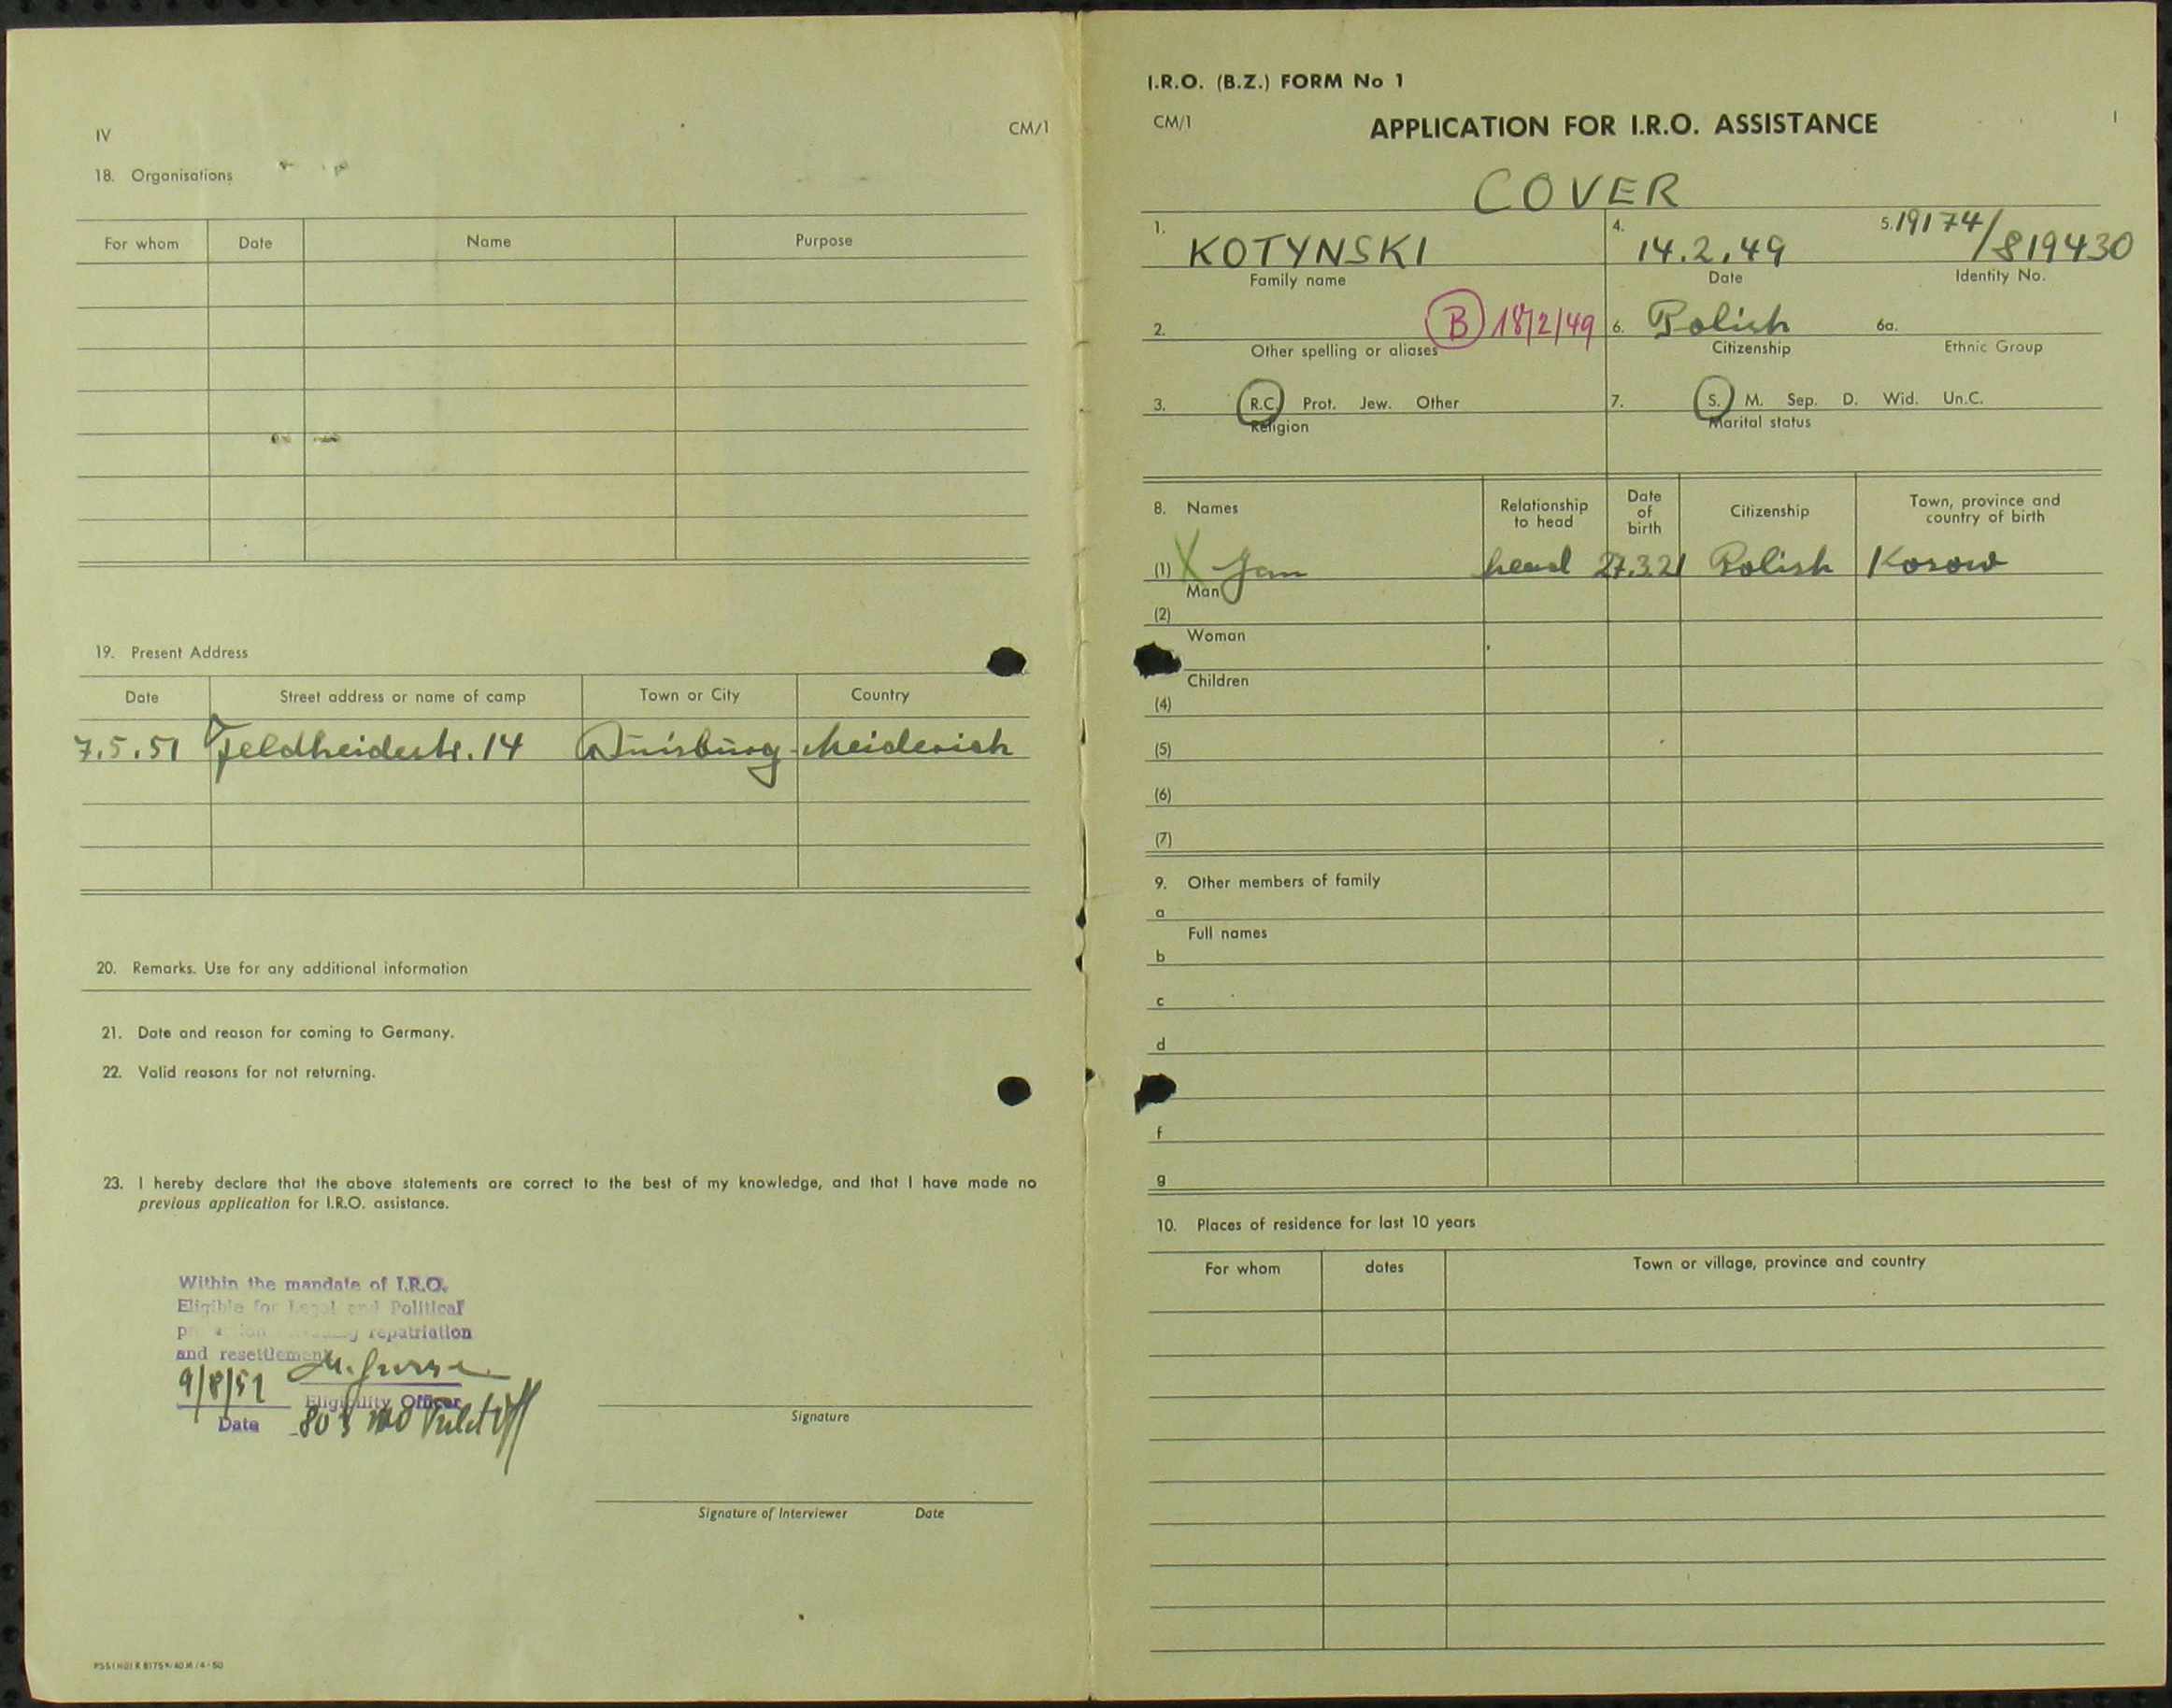 IV
CM/1
18. Organisations
For whom Date Name Purpose
19. Present Address
Date Street address or name of camp Town or City Country
7.5.51 Feldheidestr. 14 Duisburg-Meiderich
20. Remarks. Use for any additional information
21. Date and reason for coming to Germany.
22. Valid reasons for not returning.
23. I hereby declare that the above statements are correct to the best of my knowledge, and that I have made no
previous application for I.R.O. assistance.
Within the mandate of I.R.O.
Eligible for Legal and Political
repatriation
and resettlement
9/8/51
Eligibility Officer
Date
Signature
Signature of Interviewer Date
I.R.O. (B.Z.) FORM No 1
CM/1 APPLICATION FOR I.R.O. ASSISTANCE I
COVER
1. KOTYNSKI 4. 14.2.49 5. 19174/819430
Family name Date Identity No.
2. B 18/2/49 6. Polish 6a.
Other spelling or aliases Citizenship Ethnic Group
3. R.C. Prot. Jew. Other 7. S. M. Sep. D. Wid. Un.C.
Religion Marital status
8. Names Relationship to head Date of birth Citizenship Town, province and country of birth
(1) X Jan head 27.3.21 Polish Kosow
Man
(2)
Woman
Children
(4)
(5)
(6)
(7)
9. Other members of family
a
Full names
b
c
d
f
g
10. Places of residence for last 10 years
For whom dates Town or village, province and country